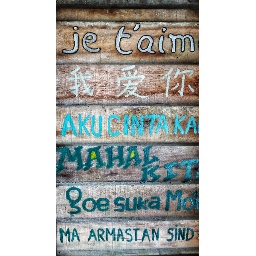 je t'aim
我 爱 你
AKU CINTA KA
MAHAL KIT
goe suka Mo
MA ARMASTAN SIND